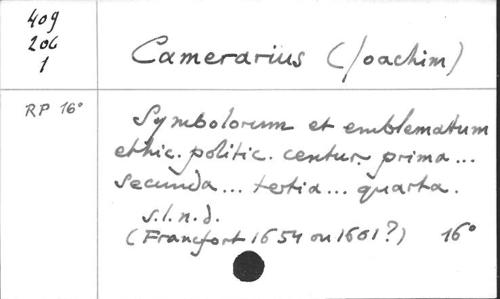 409
206
1
Camerarius (Joachim)
RP 16°
Symbolorum et emblematum
ethic. politic. centur. prima...
secunda... tertia... quarta.
s.l.n.d.
(Francfort 1654 ou 1661?) 16°